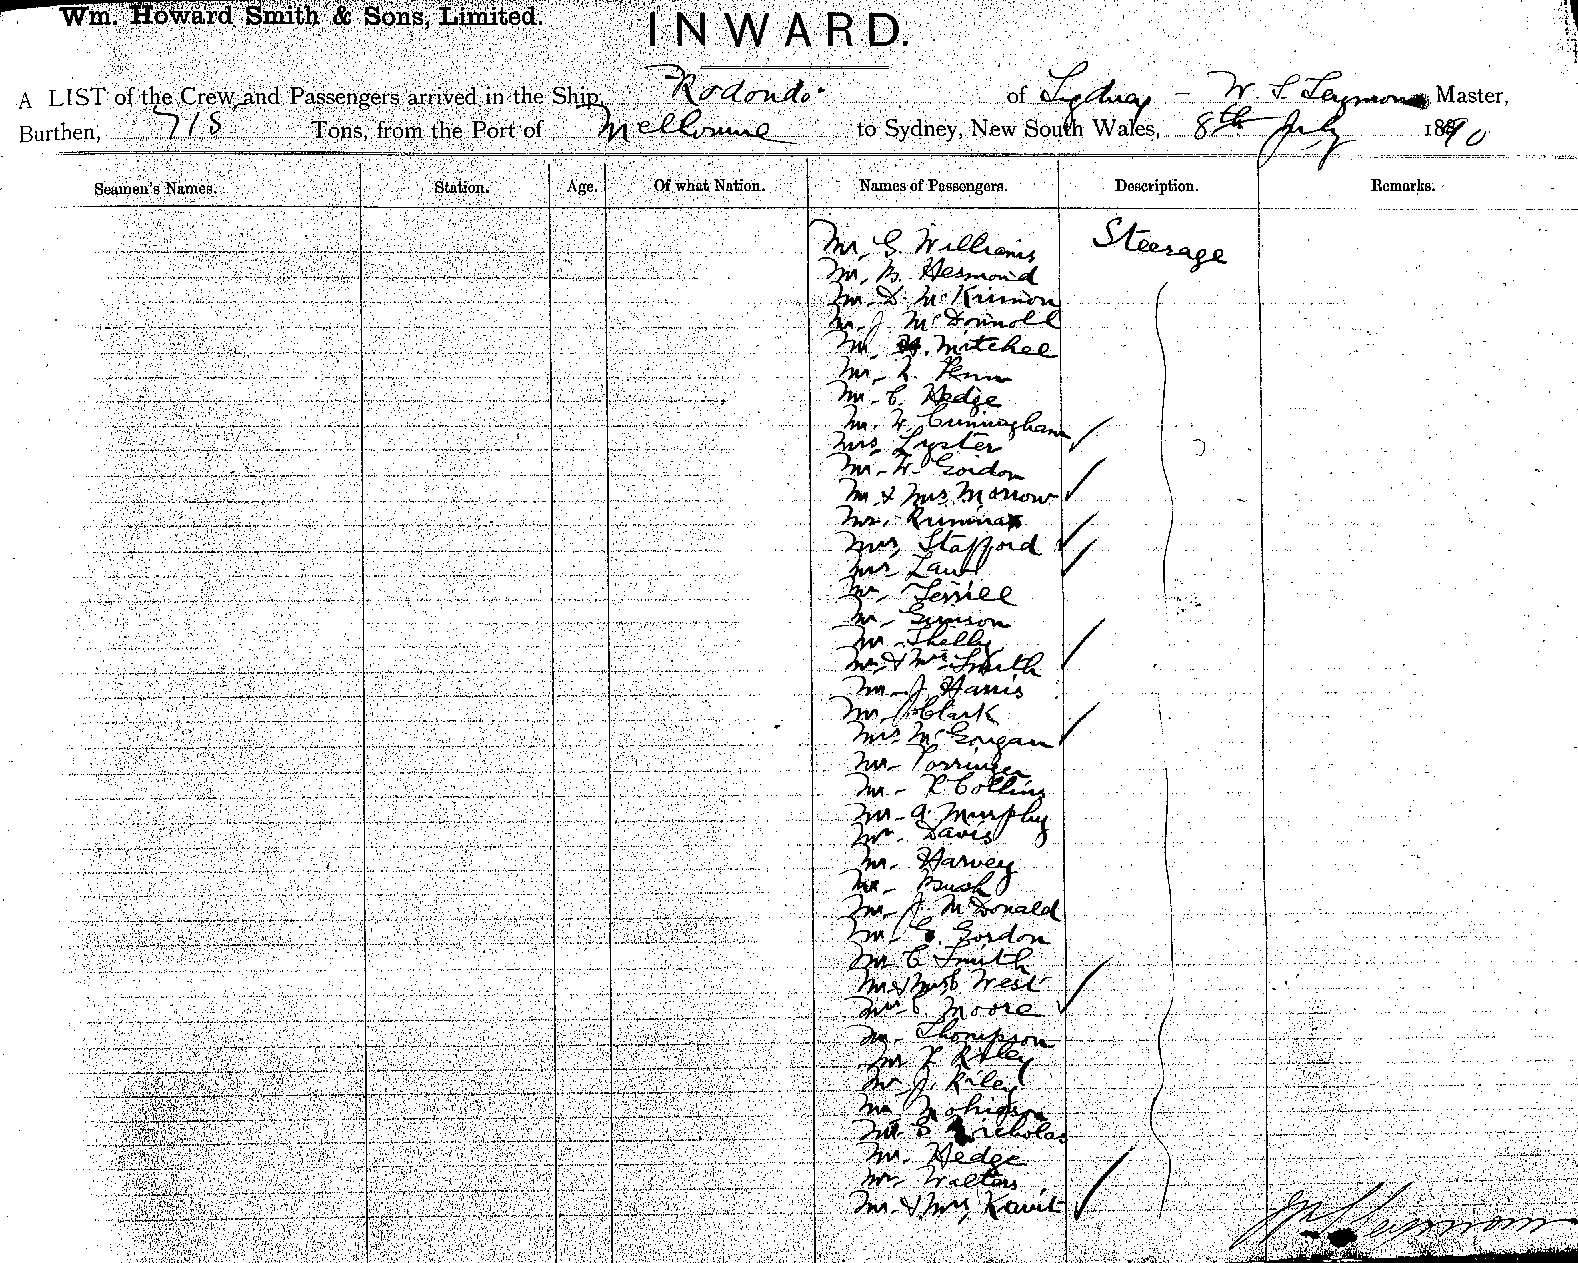 Wm. Howard Smith & Sons, Limited.
INWARD.
A LIST of the Crew and Passengers arrived in the Ship, Rodondo of Sydney - W. S. Master,
Burthen, 715 Tons, from the Port of Melbourne to Sydney, New South Wales, 8th July 1890
Seamen's Names. Station. Age. Of what Nation. Names of Passengers. Description. Remarks.
Mr. G. Williams Steerage
Mr. Hesmond
Mr. D. McKinnon
Mr. J. McDonnell
Mr. Mitchell
Mr. Penn
Mr. C. Hedge
Mr. W. Cunningham
Mrs. Lyster
Mr. W. Gordon
Mr. & Mrs. Morrow
Mr.
Mrs. Stafford
Law
Mr. Terrill
Mr. Gunson
Mr. Shelly
Mr. & Mrs. Smith
Mr. J. Harris
Mr. Clark
Mrs. McGorgan
Mr. Porringer
Mr. R. Collins
Mr. A. Murphy
Mr. Davis
Mr. Harvey
Mr. Bush
Mr. J. McDonald
Mr. Gordon
Mr. C. Smith
Mr. & Mrs. West
Moore
Mr. Thompson
Mr. Riley
Mr. J. Riley
Mr.
Mr. Nicholas
Mr. Hedge
Mr. Walters
Mr. & Mrs.